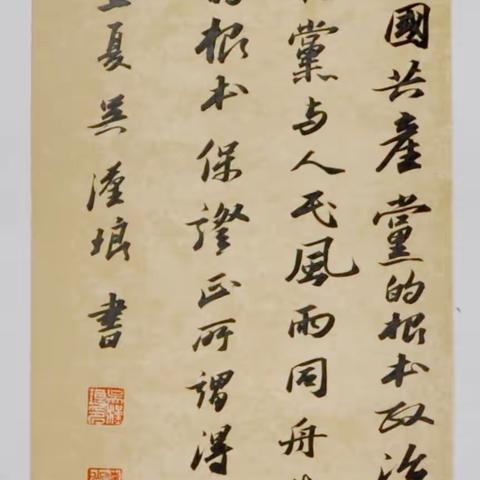 國共產黨的根本政治
黨与人民風雨同舟
的根本保證正所謂得
夏吴漢琅書